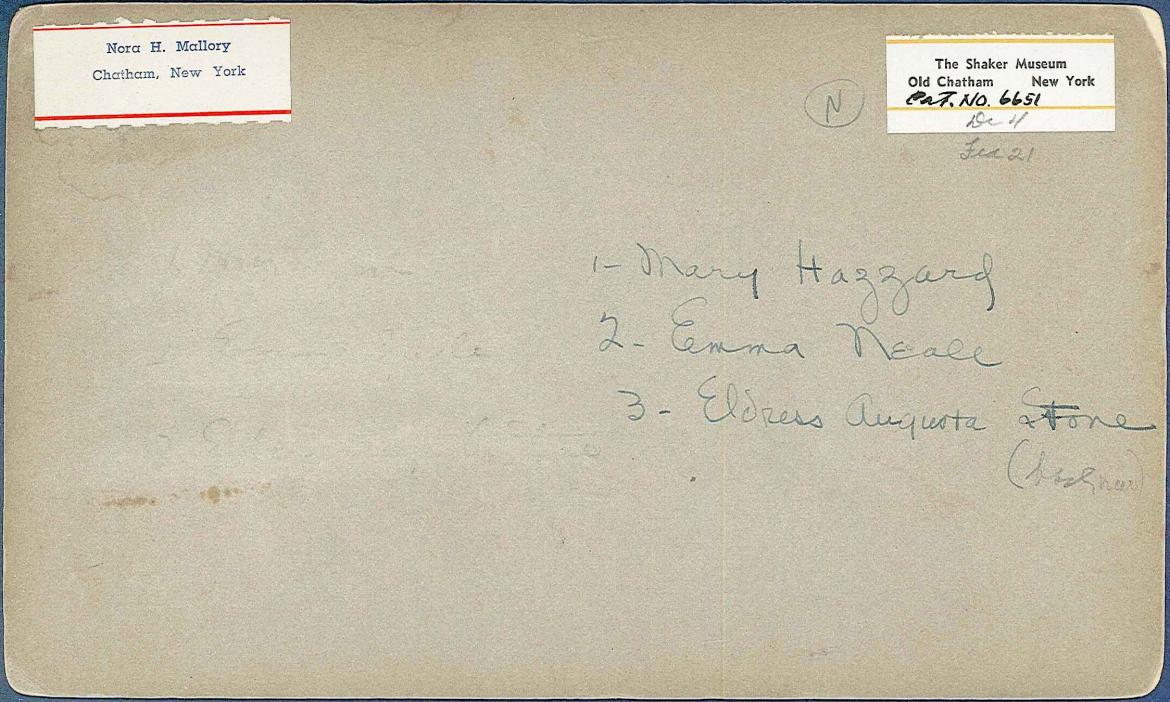 Nora H. Mallory
Chatham, New York
The Shaker Museum
Old Chatham New York
Cat. No. 6651
N
1- Mary Hazzard
2- Emma Neale
3- Eldress Augusta Stone